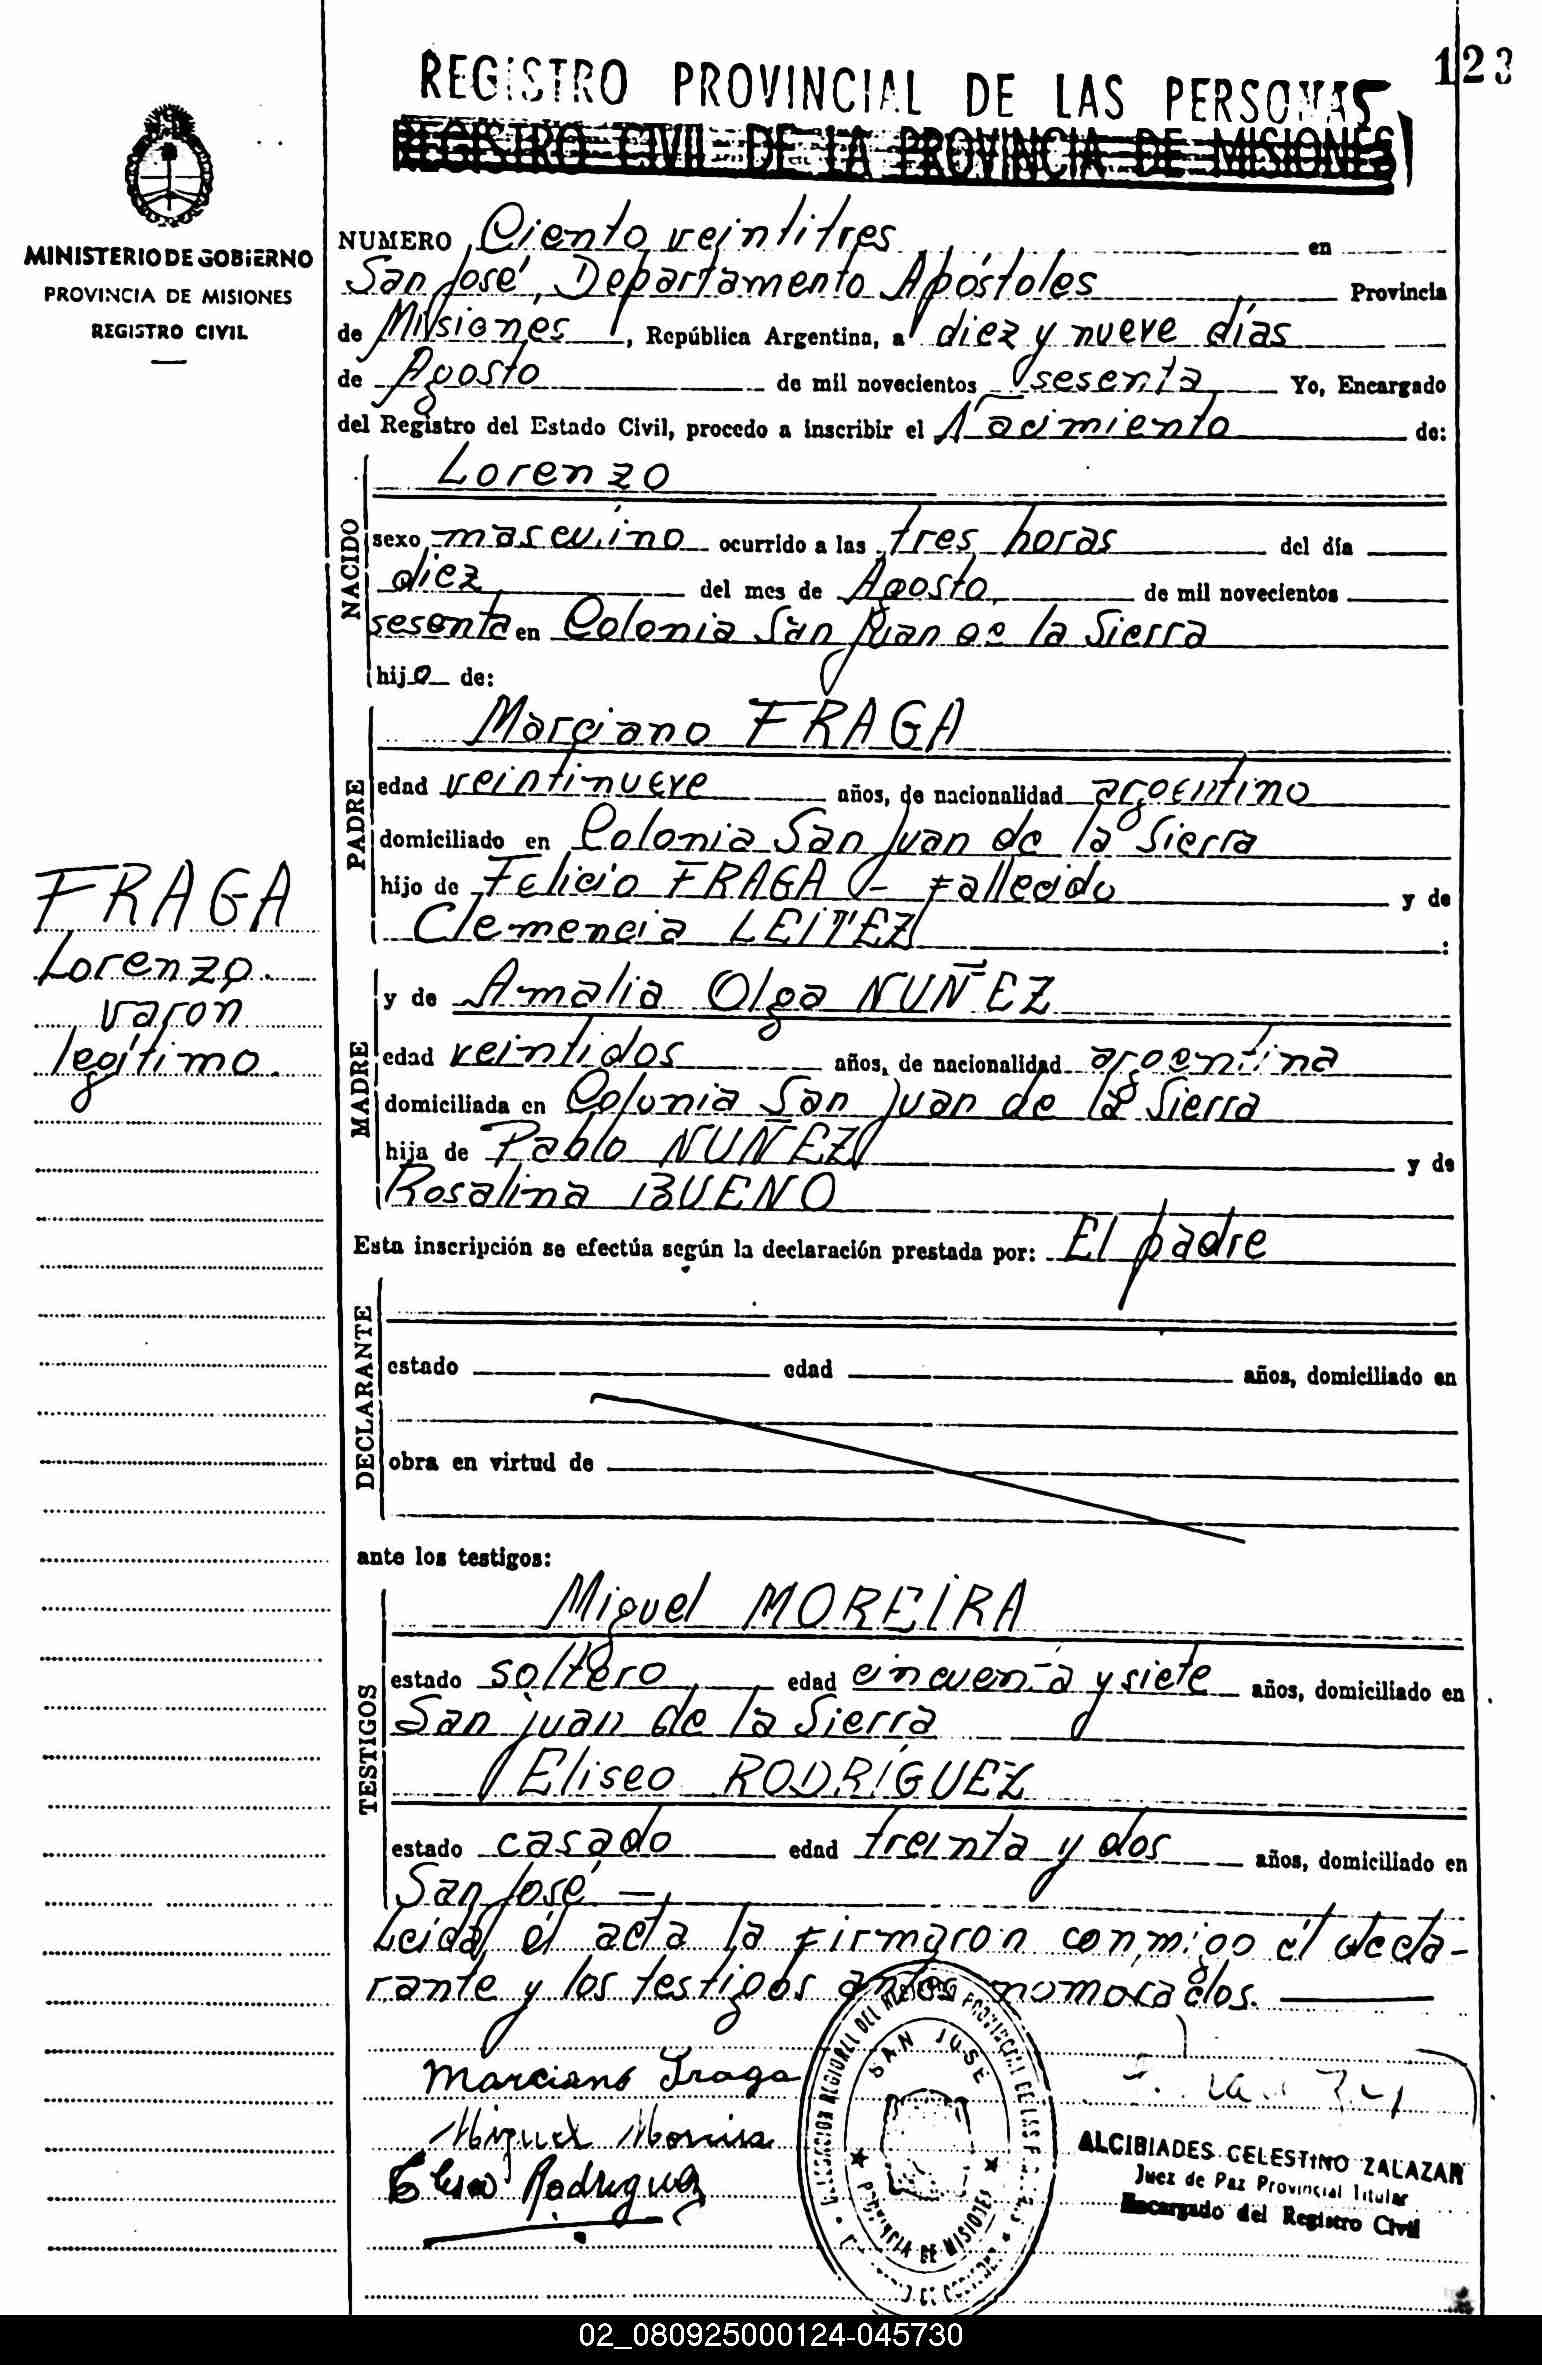 123
REGISTRO PROVINCIAL DE LAS PERSONAS
REGISTRO CIVIL DE LA PROVINCIA DE MISIONES
MINISTERIO DE GOBIERNO
PROVINCIA DE MISIONES
REGISTRO CIVIL
NUMERO Ciento veintitres en
San José, Departamento Apóstoles Provincia
de Misiones, República Argentina, a diez y nueve días
de Agosto de mil novecientos sesenta Yo, Encargado
del Registro del Estado Civil, procedo a inscribir el Nacimiento de:
NACIDO
Lorenzo
sexo masculino ocurrido a las tres horas del día
diez del mes de Agosto de mil novecientos
sesenta en Colonia San Juan de la Sierra
hijo de:
PADRE
Marciano FRAGA
edad veintinueve años, de nacionalidad argentino
domiciliado en Colonia San Juan de la Sierra
hijo de Felicio FRAGA - fallecido y de
Clemencia LEITEZ :
FRAGA
Lorenzo.
varon
legítimo.
MADRE
y de Amalia Olga NUÑEZ
edad veintidos años, de nacionalidad argentina
domiciliada en Colonia San Juan de la Sierra
hija de Pablo NUÑEZ y de
Rosalina BUENO
Esta inscripción se efectúa según la declaración prestada por: El padre
DECLARANTE
estado edad años, domiciliado en
obra en virtud de
ante los testigos:
TESTIGOS
Miguel MOREIRA
estado soltero edad cincuenta y siete años, domiciliado en
San Juan de la Sierra
Eliseo RODRÍGUEZ
estado casado edad treinta y dos años, domiciliado en
San José =
Leída el acta la firmaron conmigo él decla-
rante y los testigos antes nomorados.
Marciano Fraga
Miguel Moreira
Eliseo Rodriguez
SAN JOSE
PROVINCIA DE MISIONES
ALCIBIADES CELESTINO ZALAZAR
Juez de Paz Provincial Titular
Encargado del Registro Civil
02_080925000124-045730